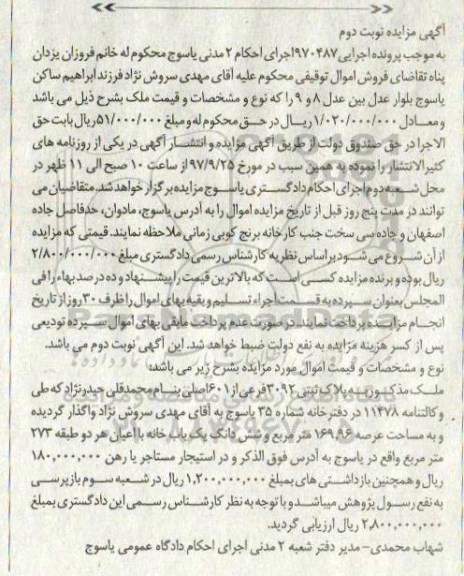 آگهی مزایده نوبت دوم
به موجب پرونده اجرایی ۹۷۰۴۸۷اجرای احکام ۲ مدنی یاسوج محکوم له خانم فروزان یزدان
پناه تقاضای فروش اموال توقیفی محکوم علیه آقای مهدی سروش نژاد فرزند ابراهیم ساکن
یاسوج بلوار عدل بین عدل ۸ و ۹ را که نوع و مشخصات و قیمت ملک بشرح ذیل می باشد
و معادل ۱/۰۲۰/۰۰۰/۰۰۰ ریال در حق محکوم له و مبلغ ۵۱/۰۰۰/۰۰۰ریال بابت حق
الاجرا در حق صندوق دولت از طریق آگهی مزایده و انتشار آگهی در یکی از روزنامه های
کثیرالانتشار را نموده به همین سبب در مورخ ۹۷/۹/۲۵ از ساعت ۱۰ صبح الی ۱۱ ظهر در
محل شعبه دوم اجرای احکام دادگستری یاسوج مزایده برگزار خواهد شد. متقاضیان می
توانند در مدت پنج روز قبل از تاریخ مزایده اموال را به آدرس یاسوج، مادوان، حدفاصل جاده
اصفهان و جاده سی سخت جنب کارخانه برنج کوبی زمانی ملاحظه نمایند. قیمتی که مزایده
از آن شروع می شود بر اساس نظریه کارشناس رسمی دادگستری مبلغ ۲/۸۰۰/۰۰۰/۰۰۰
ریال بوده و برنده مزایده کسی است که بالاترین قیمت را پیشنهاد و ده درصد بهاء را فی
المجلس بعنوان سپرده به قسمت اجراء تسلیم و بقیه بهای اموال را ظرف ۳۰ روز از تاریخ
انجام مزایده پرداخت نمایند. در صورت عدم پرداخت مابقی بهای اموال سپرده تودیعی
پس از کسر هزینه مزایده به نفع دولت ضبط خواهد شد. این آگهی نوبت دوم می باشد.
نوع و مشخصات و قیمت اموال مورد مزایده بشرح زیر می باشد:
ملک مذکور به پلاک ثبتی ۳۰۹۲ فرعی از ۶۰۱اصلی بنام محمدقلی حیدرنژاد که طی
وکالتنامه ۱۱۴۷۸ در دفترخانه شماره ۳۵ یاسوج به آقای مهدی سروش نژاد واگذار گردیده
و به مساحت عرصه ۱۶۹,۸۶ متر مربع و شش دانگ یک باب خانه با اعیان هر دو طبقه ۲۷۳
متر مربع واقع در یاسوج به آدرس فوق الذکر و در استیجار مستاجر با رهن ۱۸۰,۰۰۰,۰۰۰
ریال و همچنین بازداشتی های بمبلغ ۱,۲۰۰,۰۰۰,۰۰۰ ریال در شعبه سوم بازپرسی
به نفع رسول پژوهش میباشد و با توجه به نظر کارشناس رسمی این دادگستری بمبلغ
۲,۸۰۰,۰۰۰,۰۰۰ ریال ارزیابی گردید.
شهاب محمدی- مدیر دفتر شعبه ۲ مدنی اجرای احکام دادگاه عمومی یاسوج